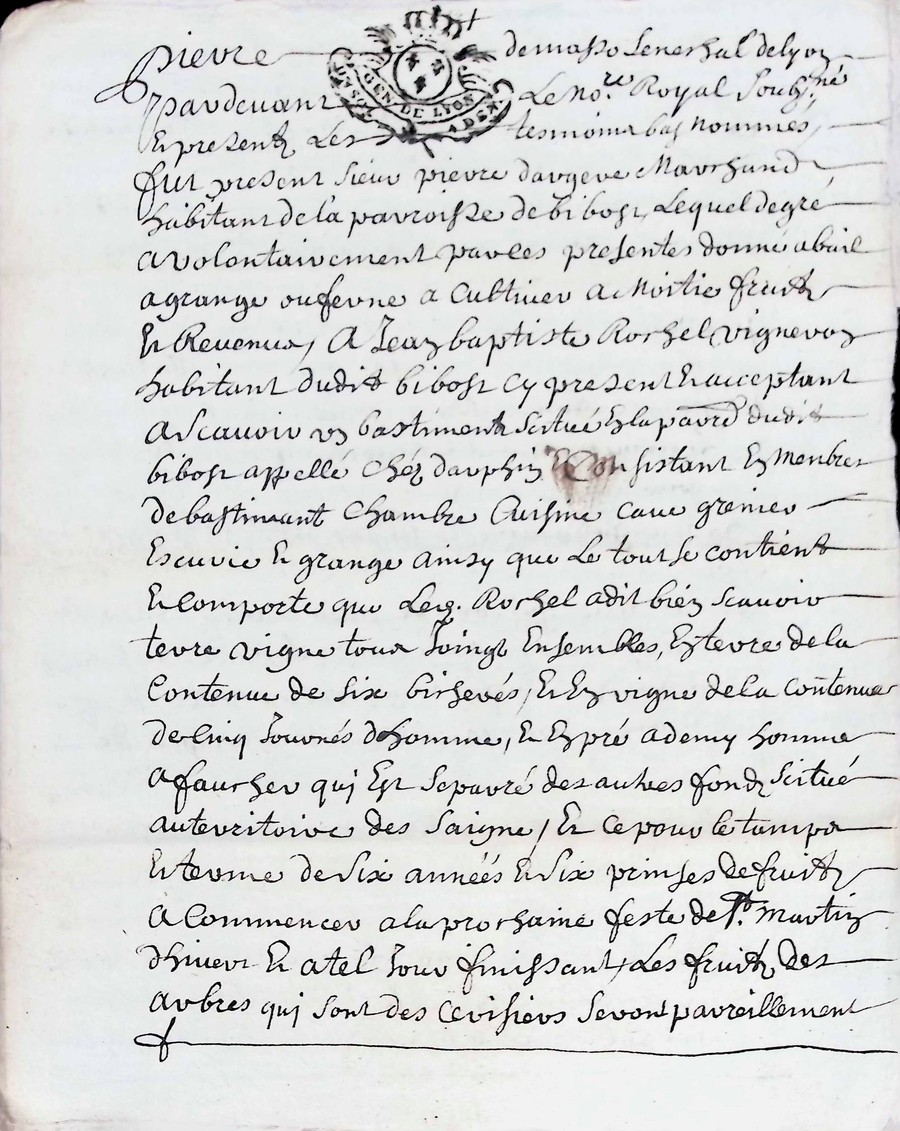 pierre demasso seneschal de lyon
pardevant le no.re Royal soubz.né
Et presentz Les tesmoins bas nommés,
fut present sieur pierre dargere Marchand
habitant de la parroisse de bibost, Lequel de gré
a volontairement par ces presentes donné a bail
a grange ou ferme a Cultiver a Moitié fruitz
Et Revenus, A Jean baptiste Rochel, vigneron
habitant dudit bibost cy present Et acceptant
a scavoir un bastiment scitué En la parr.e dudit
bibost appellé Chéz dauphin Et Consistant En menbres
de bastimant Chambre Cuisine cave grenier
Escurie Et grange ainsy que Le tout se contient
Et comporte que Led. Rochel a dit bién scavoir
terre vigne tous Joingt Ensembles, En terre de la
Contenue de six bicherés, Et En vigne de la contenue
de Cinq Journés d'homme, Et En pré a demy homme
a faucher qui Est separé des autres fondz scitué
au territoire des saigne, Et ce pour le tamps
Et terme de Six années Et Six prinses de fruitz
a Commencer a la prochaine feste de St. Martin
d'hiver Et a tel Jour finissant, Les fruitz des
arbres qui sont des cerisiers seront pareillement
GEN DE LYON